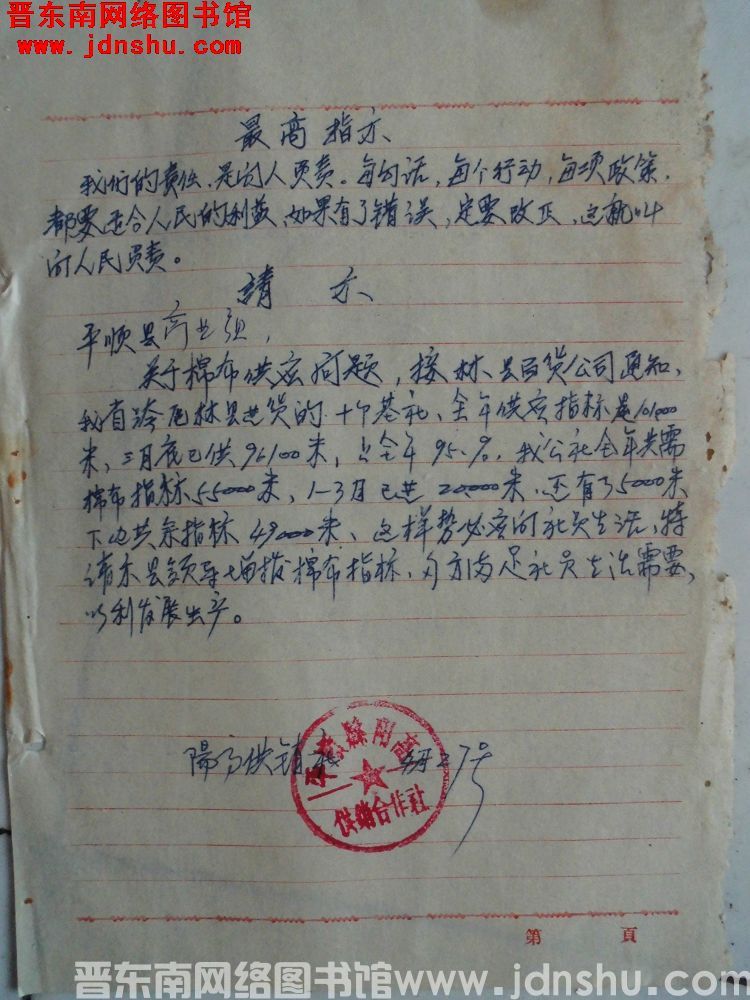 晋东南网络图书馆
www.jdnshu.com
最高指示
我们的责任,是向人民负责。每句话,每个行动,每项政策,
都要适合人民的利益,如果有了错误,定要改正,这就叫
向人民负责。
請示
平顺县商业组,
关于棉布供应问题,接林县百货公司通知,
我省 林县进货的十个基社,全年供应指标是101000
米,三月底已供96100米,占全年95%。我公社全年共需
棉布指标55000米,1-3月已进20000米,还有35000米
下边共余指标4900米,这样势必影响社员生活,特
请示县领导增拨棉布指标, 满足社员生活需要,
以利发展生产。
陽高供销社 27号
平順縣陽高
供銷合作社
第 頁
晋东南网络图书馆www.jdnshu.com